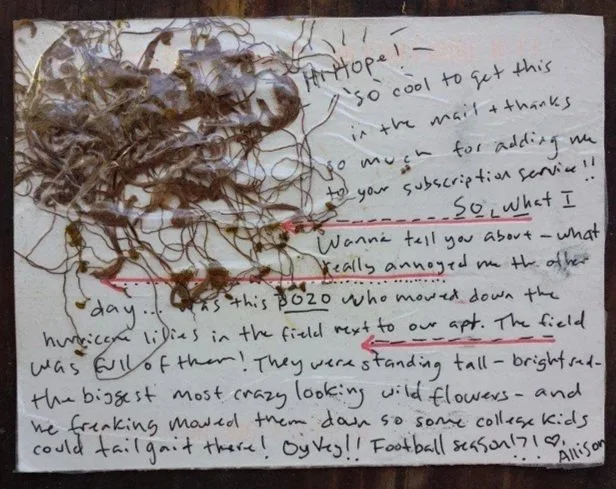 Hi Hope! –
so cool to get this
in the mail + thanks
so much for adding me
to your subscription service!!
So, what I
Wanna tell you about – what
really annoyed me the other
day... was this BOZO who mowed down the
hurricane lilies in the field next to our apt. The field
was full of them! They were standing tall – bright red –
the biggest most crazy looking wild flowers – and
he freaking mowed them down so some college kids
could tailgait there! Oy Vey!! Football season!?! ♡,
Allison